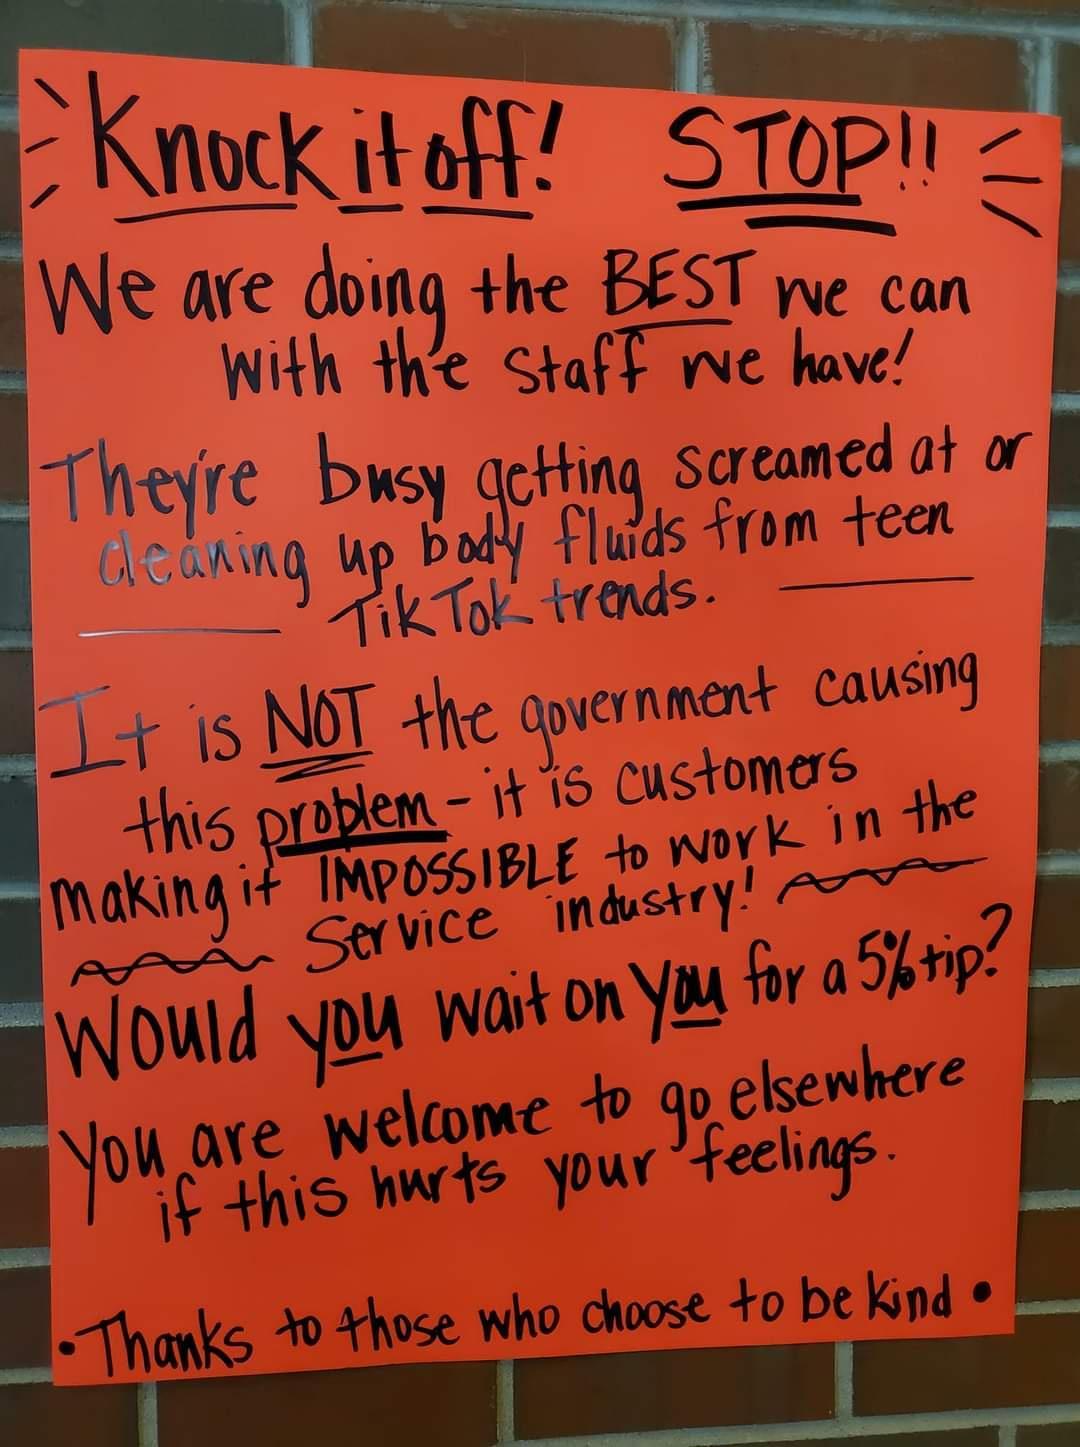 Knock it off! STOP!!
We are doing the BEST we can
with the staff we have!
They're busy getting screamed at or
cleaning up body fluids from teen
TikTok trends.
It is NOT the government causing
this problem - it is customers
making it IMPOSSIBLE to work in the
Service industry!
Would you wait on you for a 5% tip?
You are welcome to go elsewhere
if this hurts your feelings.
• Thanks to those who choose to be kind •